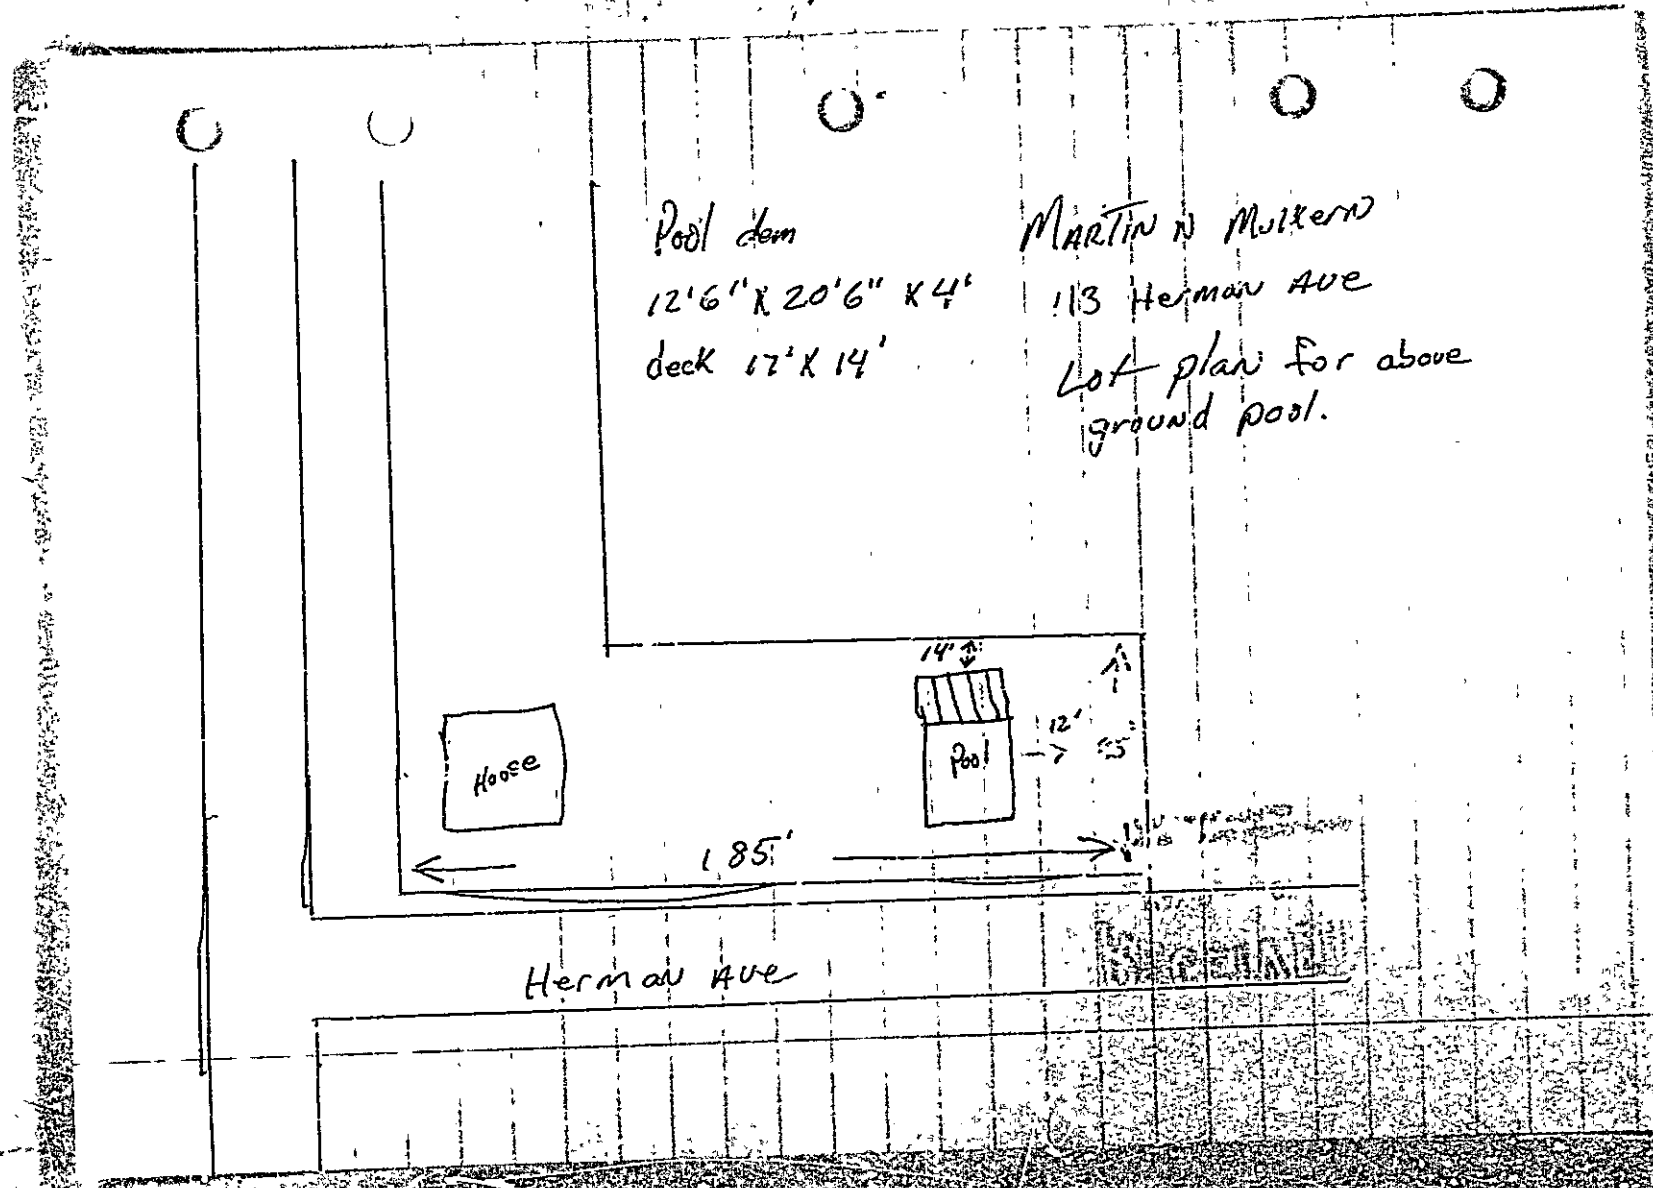 Pool dem
12'6" X 20'6" X 4'
deck 17' X 14'
MARTIN N Mulkern
113 Herman Ave
Lot plan for above
ground pool.
14'
House
Pool
12'
55'
185'
Herman Ave